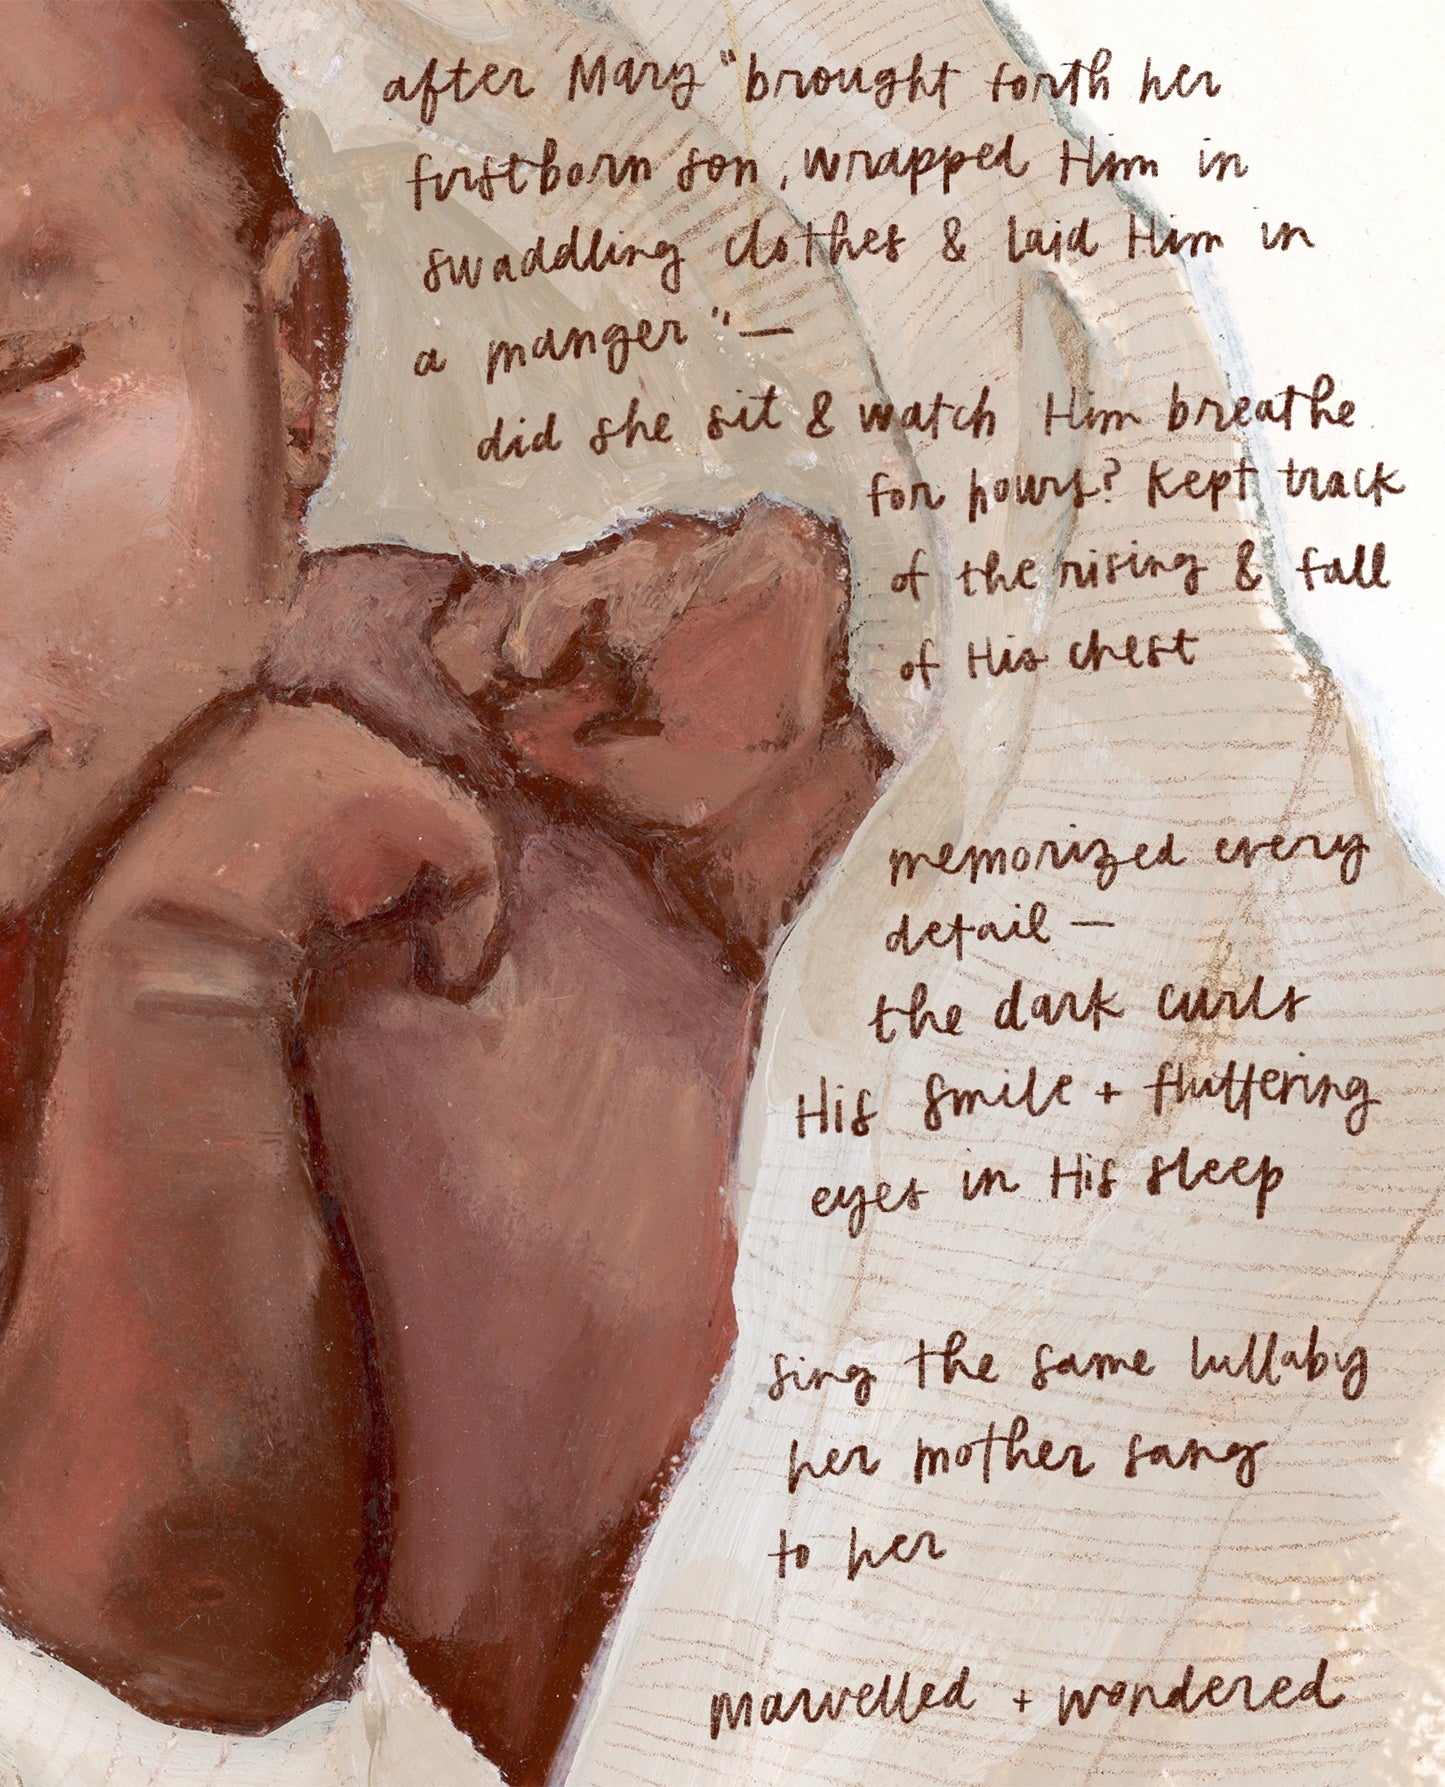 after Mary "brought forth her
firstborn son, wrapped Him in
swaddling clothes & laid Him in
a manger" —
did she sit & watch Him breathe
for hours? Kept track
of the rising & fall
of His chest
memorized every
detail —
the dark curls
His smile + fluttering
eyes in His sleep
sing the same lullaby
her mother sang
to her
marvelled + wondered